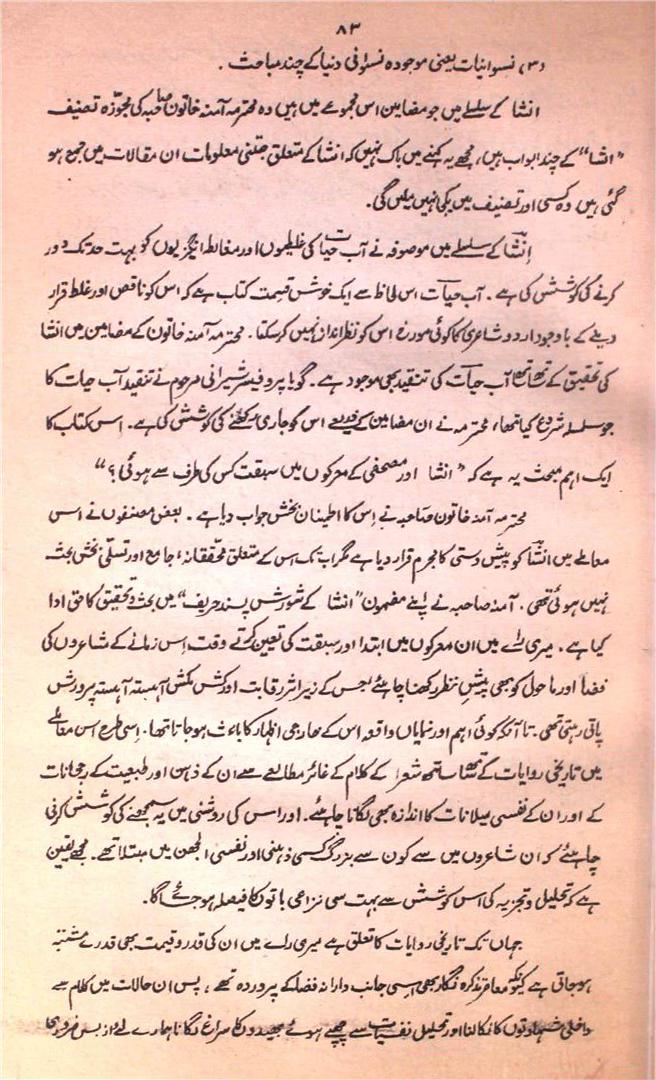 ۸۳
(۳) نسوانیات یعنی موجودہ نسوانی دنیا کے چند مباحث۔
انشا کے سلسلے میں جو مضامین اس مجموعے میں ہیں وہ محترمہ آمنہ خاتون صاحبہ کی مجوّزہ تصنیف
”انشا“ کے چند ابواب ہیں، مجھے یہ کہنے میں باک نہیں کہ انشا کے متعلق جتنی معلومات ان مقالات میں جمع ہو
گئی ہیں وہ کسی اور تصنیف میں یکجا نہیں ملیں گی۔
انشا کے سلسلے میں موصوفہ نے آب حیات کی غلطیوں اور مغالطہ انگیزیوں کو بہت حد تک دور
کرنے کی کوشش کی ہے۔ آب حیات اس لحاظ سے ایک خوش قیمت کتاب ہے کہ اس کو ناقص اور غلط قرار
دینے کے باوجود اردو شاعری کا کوئی مورخ اس کو نظر انداز نہیں کر سکتا۔ محترمہ آمنہ خاتون کے مضامین میں انشا
کی تحقیق کے ساتھ ساتھ آب حیات کی تنقید بھی موجود ہے۔ گویا پروفیسر شیرانی مرحوم نے تنقید آب حیات کا
جو سلسلہ شروع کیا تھا، محترمہ نے ان مضامین کے ذریعے اس کو جاری رکھنے کی کوشش کی ہے۔ اس کتاب کا
ایک اہم مبحث یہ ہے کہ ”انشا اور مصحفی کے معرکوں میں سبقت کس کی طرف سے ہوئی؟“
محترمہ آمنہ خاتون صاحبہ نے اس کا اطینان بخش جواب دیا ہے۔ بعض مصنفوں نے اس
معاملے میں انشا کو پیش دستی کا مجرم قرار دیا ہے مگر اب تک اس کے متعلق محققانہ، جامع اور تسلّی بخش بحث
نہیں ہوئی تھی۔ آمنہ صاحبہ نے اپنے مضمون ”انشا کے شورش پسند حریف“ میں بحث و تحقیق کا حق ادا
کیا ہے۔ میری رائے میں ان معرکوں میں ابتدا اور سبقت کی تعین کرتے وقت اِس زمانے کے شاعروں کی
فضا اور ماحول کو بھی پیشِ نظر رکھنا چاہئے جس کے زیر اثر رقابت اور کش مکش آہستہ آہستہ پرورش
پاتی رہتی تھی۔ تا آنکہ کوئی اہم اور نمایاں واقعہ اس کے خارجی اظہار کا باعث ہو جاتا تھا۔ اِسی طرح اس معاملے
میں تاریخی روایات کے ساتھ ساتھ شعرا کے کلام کے غائر مطالعے سے ان کے ذہن اور طبیعت کے رجحانات
کے اور ان کے نفسی میلانات کا اندازہ بھی لگانا چاہئے۔ اور اس کی روشنی میں یہ سمجھنے کی کوشش کرنی
چاہئے کہ ان شاعروں میں سے کون سے بزرگ کسی ذہنی اور نفسی الجھن میں مبتلا تھے۔ مجھے یقین
ہے کہ تحلیل و تجزیہ کی اس کوشش سے بہت سی نزاعی باتوں کا فیصلہ ہو جائے گا۔
جہاں تک تاریخی روایات کا تعلق ہے میری رائے میں ان کی قدر و قیمت بھی قدرے مشتبہ
ہو جاتی ہے کیونکہ معاصر تذکرہ نگار بھی اسی جانب دارانہ فضا کے پروردہ تھے، پس ان حالات میں کلام سے
داخلی شہادتوں کا نکالنا اور تحلیل نفسیات سے چھپے ہوئے بھیدوں کا سراغ لگانا ہمارے لئے از بس ضروری